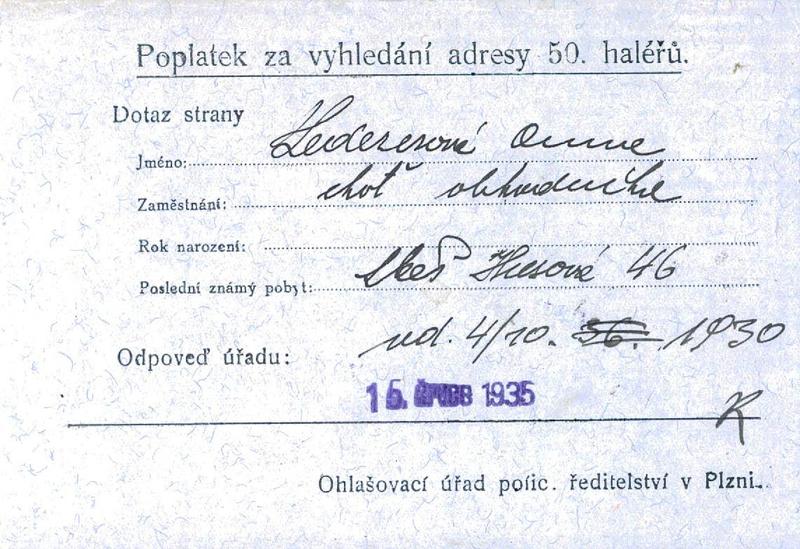 Poplatek za vyhledání adresy 50. haléřů.
Dotaz strany
Jméno: Ledererová Anna
Zaměstnání: choť obchodníka
Rok narození:
Poslední známý pobyt: Husova 46
Odpoveď úřadu: 4/10. 36. 1930
15. 1935
R
Ohlašovací úřad polic. ředitelství v Plzni.